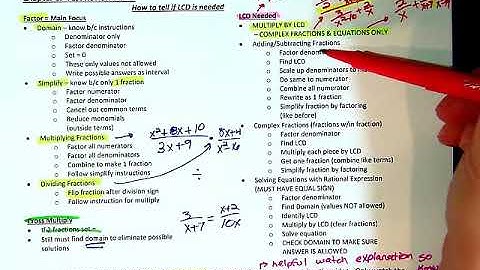 How to tell if LCD is needed
Factor = Main Focus
• Domain – know b/c instructions
o Denominator only
o Factor denominator
o Set = 0
o These only values not allowed
o Write possible answers as interval
• Simplify – know b/c only 1 fraction
o Factor numerator
o Factor denominator
o Cancel out
o Reduce monomials
(outside terms)
• Multiplying Fractions
o Factor all numerators
o Factor all denominators
o Combine to make 1 fraction
o Follow simplify instructions
• Dividing Fractions
o Flip fraction after division sign
o Follow instruction for multiply
Cross Multiply
• If 2 fractions set =
• Still must find domain to eliminate possible
solutions
3x+9
÷
3/x+7 = x+2/10x
LCD Needed
• MULTIPLY BY LCD
– COMPLEX FRACTIONS & EQUATIONS ONLY
• Adding/Subtracting Fractions
o Factor denom
o Find LCD
o Scale up denominators to ma
o Do same to numerator
o Combine numerators
o Rewrite as 1 fraction
o Simplify fraction by factoring
(like before)
• Complex Fractions (fractions w/in fraction)
o Find LCD
o Multiply each piece by LCD
o Get one fraction (combine like terms)
o Simplify fraction by factoring
• Solving Equations with Rational Expression
(MUST HAVE EQUAL SIGN)
o Factor denominator
o Find Domain (values NOT allowed)
o Identify LCD
o Multiply by LCD (clear fractions)
o Solve equation
o CHECK DOMAIN TO MAKE SURE
ANSWER IS ALLOWED
helpful watch explanation so